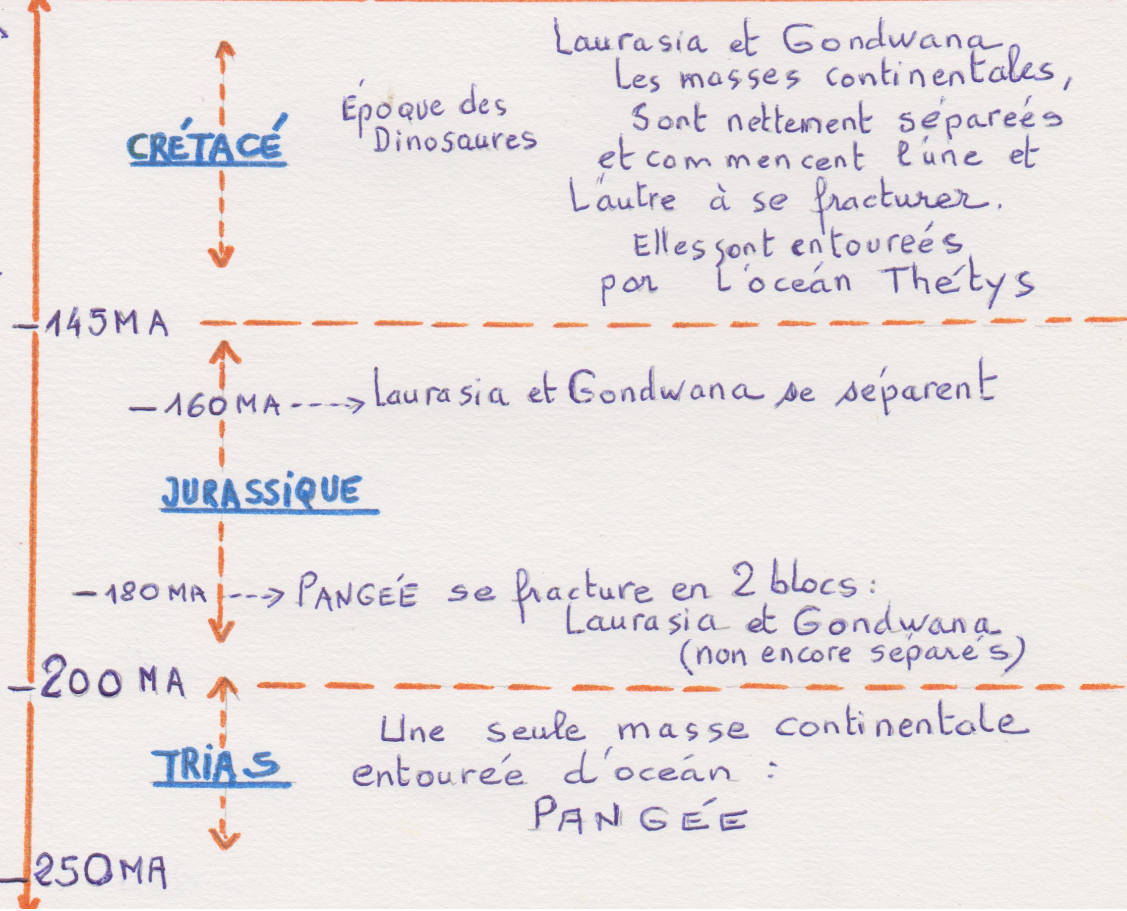 Laurasia et Gondwana
Les masses continentales,
CRÉTACÉ
Époque des
Dinosaures
Sont nettement séparées
et commencent l'une et
L'autre à se fracturer.
Elles sont entourées
par l'océan Thétys
-145 MA
-160 MA ----> Laurasia et Gondwana se séparent
JURASSIQUE
-180 MA ---> PANGÉE se fracture en 2 blocs:
Laurasia et Gondwana
(non encore séparés)
-200 MA
Une seule masse continentale
TRIAS
entourée d'océan :
PANGÉE
-250 MA